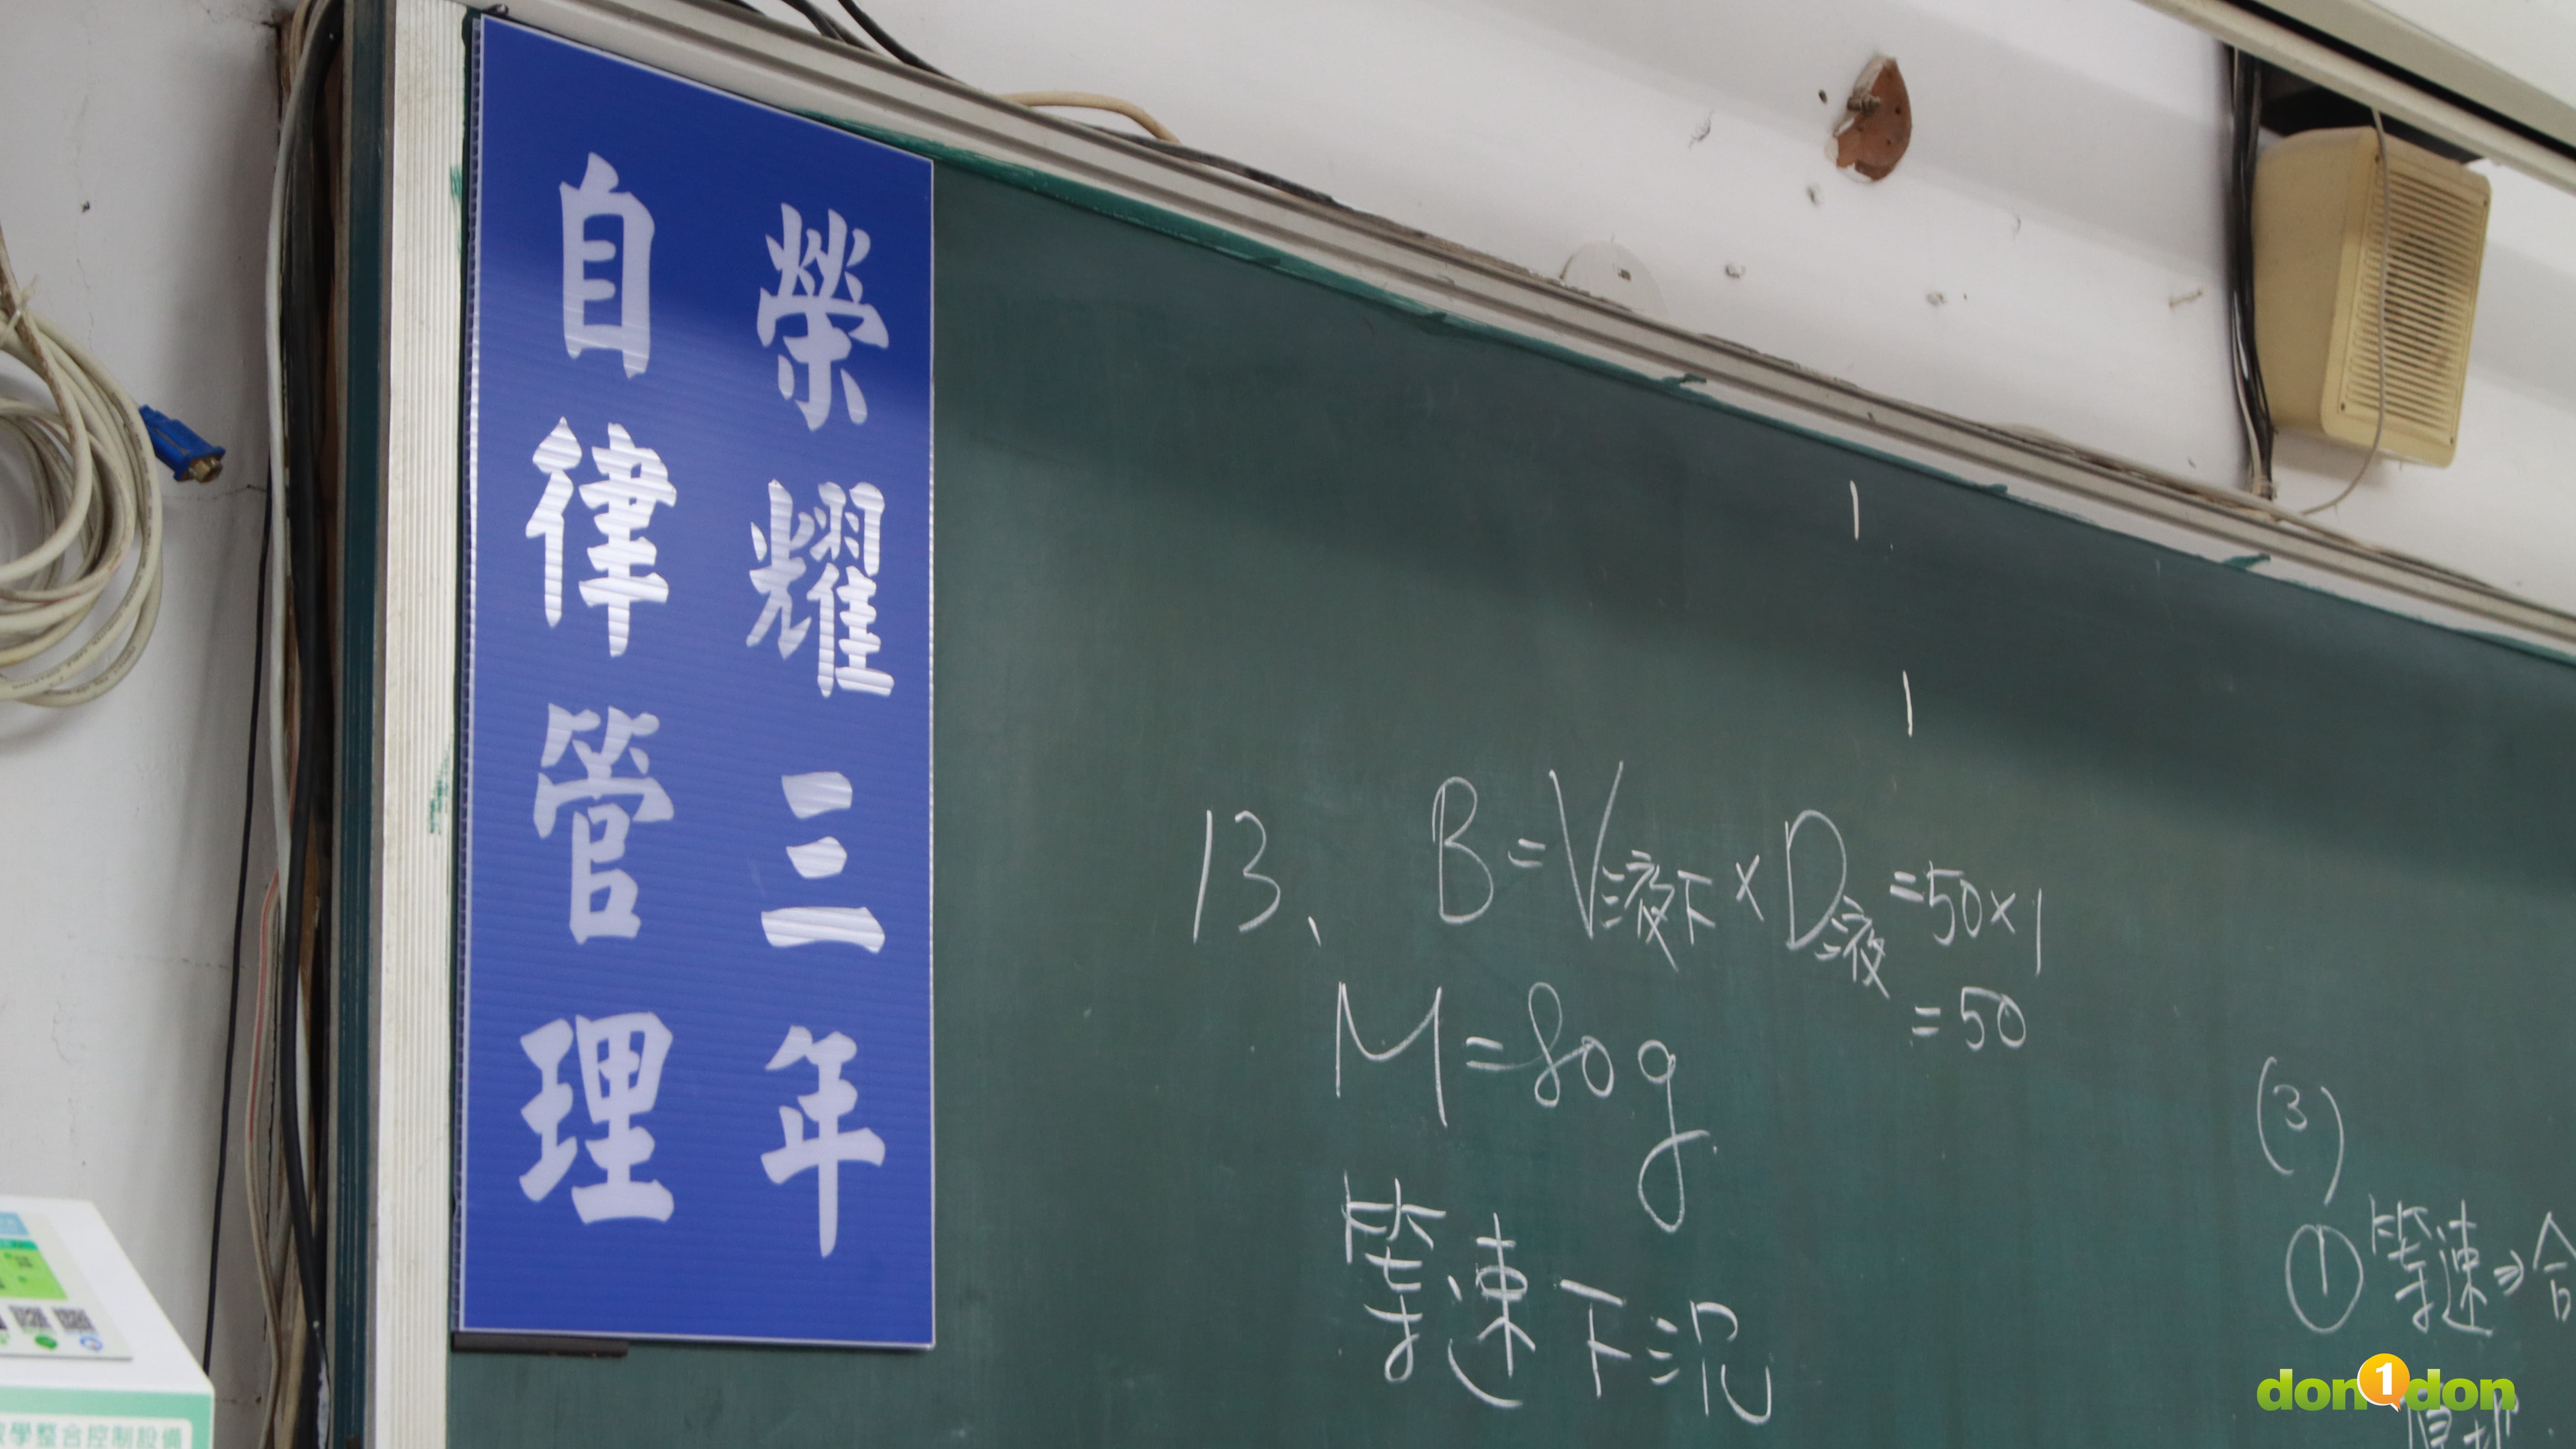 榮耀三年
自律管理
13、 B=V液下×D液=50×1
=50
M=80g
等速下沉
(3)
①等速⇒合
學整合控制設備
don1don